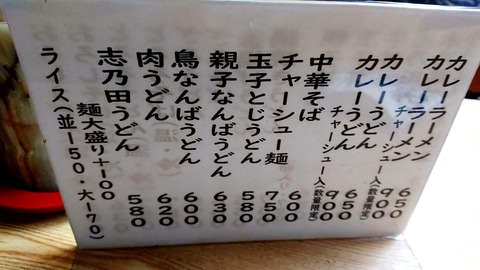 カレーラーメン 650
カレーラーメン チャーシュー入(数量限定) 900
カレーうどん 650
カレーうどん チャーシュー入(数量限定) 900
中華そば 600
チャーシュー麺 750
玉子とじうどん 580
親子なんばうどん 630
鳥なんばうどん 600
肉うどん 620
志乃田うどん 580
麺大盛り+100
ライス(並150・大170)